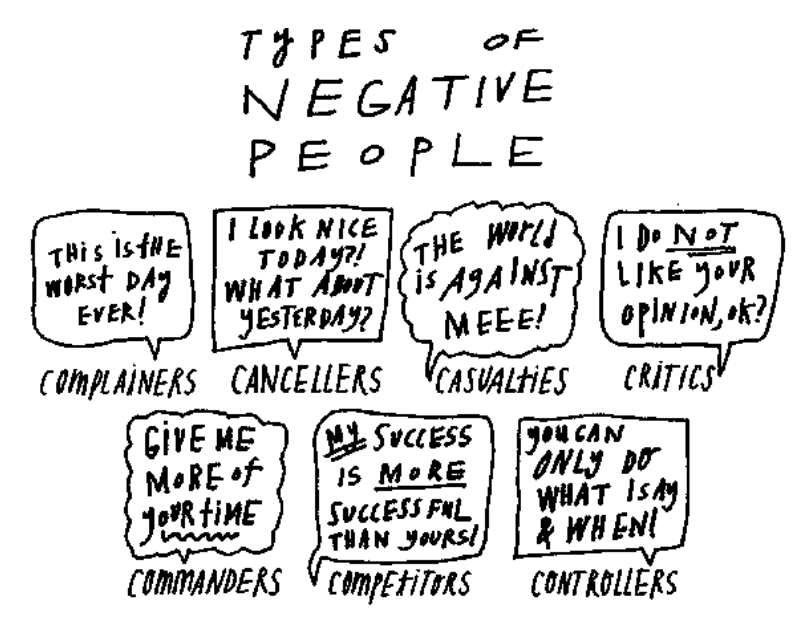 TYPES OF
NEGATIVE
PEOPLE
THIS IS THE
WORST DAY
EVER!
COMPLAINERS
I LOOK NICE
TODAY?!
WHAT ABOUT
YESTERDAY?
CANCELLERS
THE WORLD
IS AGAINST
MEEE!
CASUALTIES
I DO NOT
LIKE YOUR
OPINION, OK?
CRITICS
GIVE ME
MORE OF
YOUR TIME
COMMANDERS
MY SUCCESS
IS MORE
SUCCESSFUL
THAN YOURS!
COMPETITORS
YOU CAN
ONLY DO
WHAT I SAY
& WHEN!
CONTROLLERS